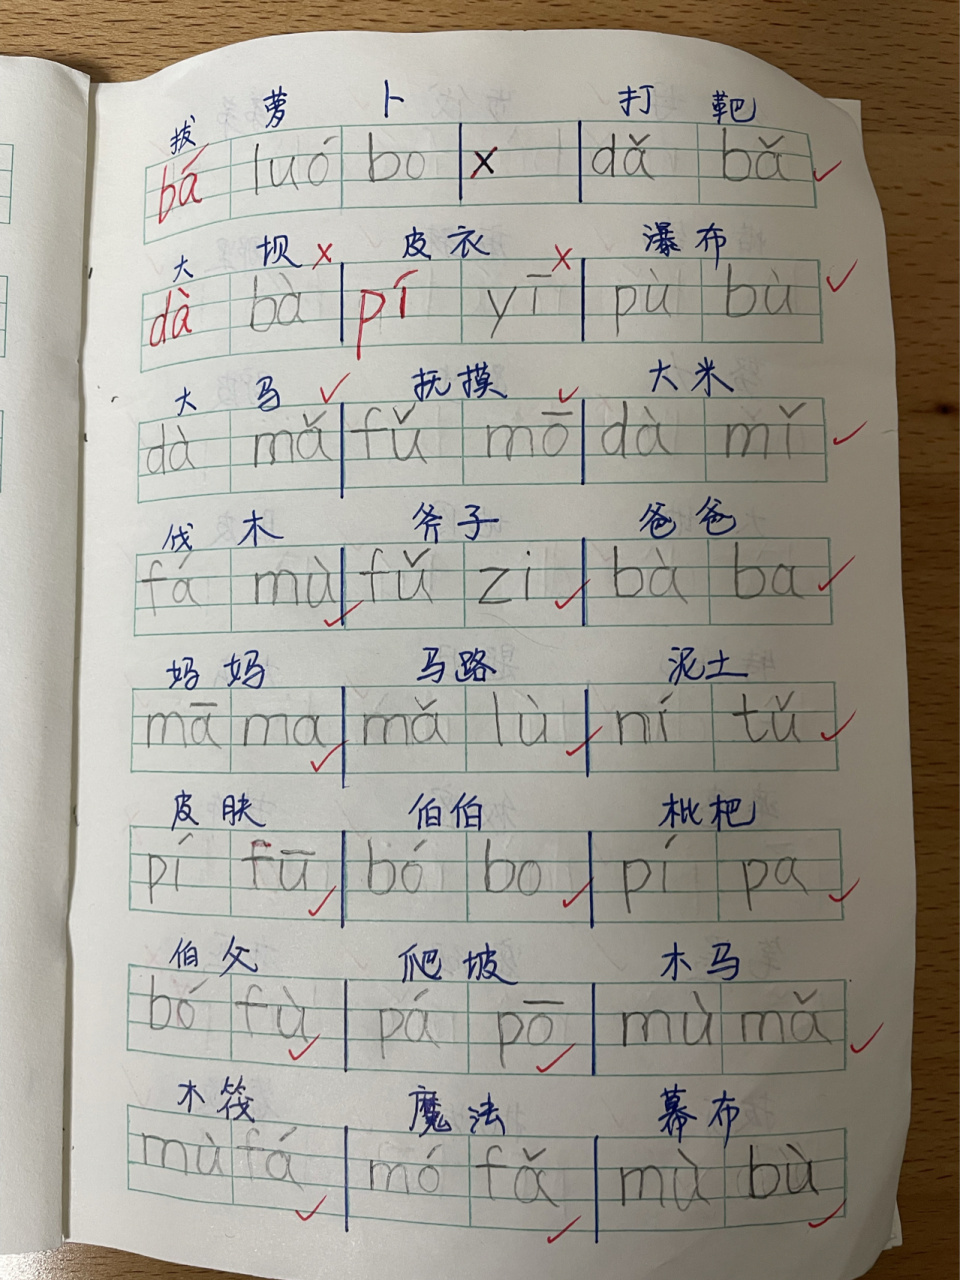 拔 萝 卜 打 靶
bá luó bo x dǎ bǎ
大 坝 皮 衣 瀑 布
dà bà pí yī pù bù
大 马 抚 摸 大 米
dà mǎ fǔ mō dà mǐ
伐 木 斧 子 爸 爸
fá mù fǔ zi bà ba
妈 妈 马 路 泥 土
mā ma mǎ lù ní tǔ
皮 肤 伯 伯 枇 杷
pí fū bó bo pí pa
伯 父 爬 坡 木 马
bó fù pá pō mù mǎ
木 筏 魔 法 幕 布
mù fá mó fǎ mù bù